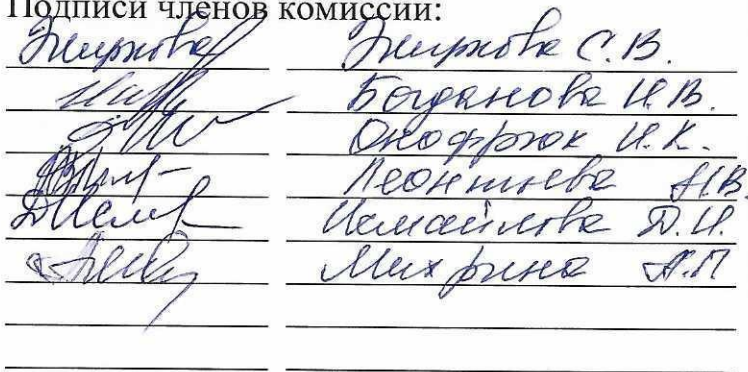 Подписи членов комиссии:
Жиркова Жиркова С.В.
Богданова И.В.
Онофрюк И.К.
Леонтьева Н.В.
Исмаилова Д.И.
А.П